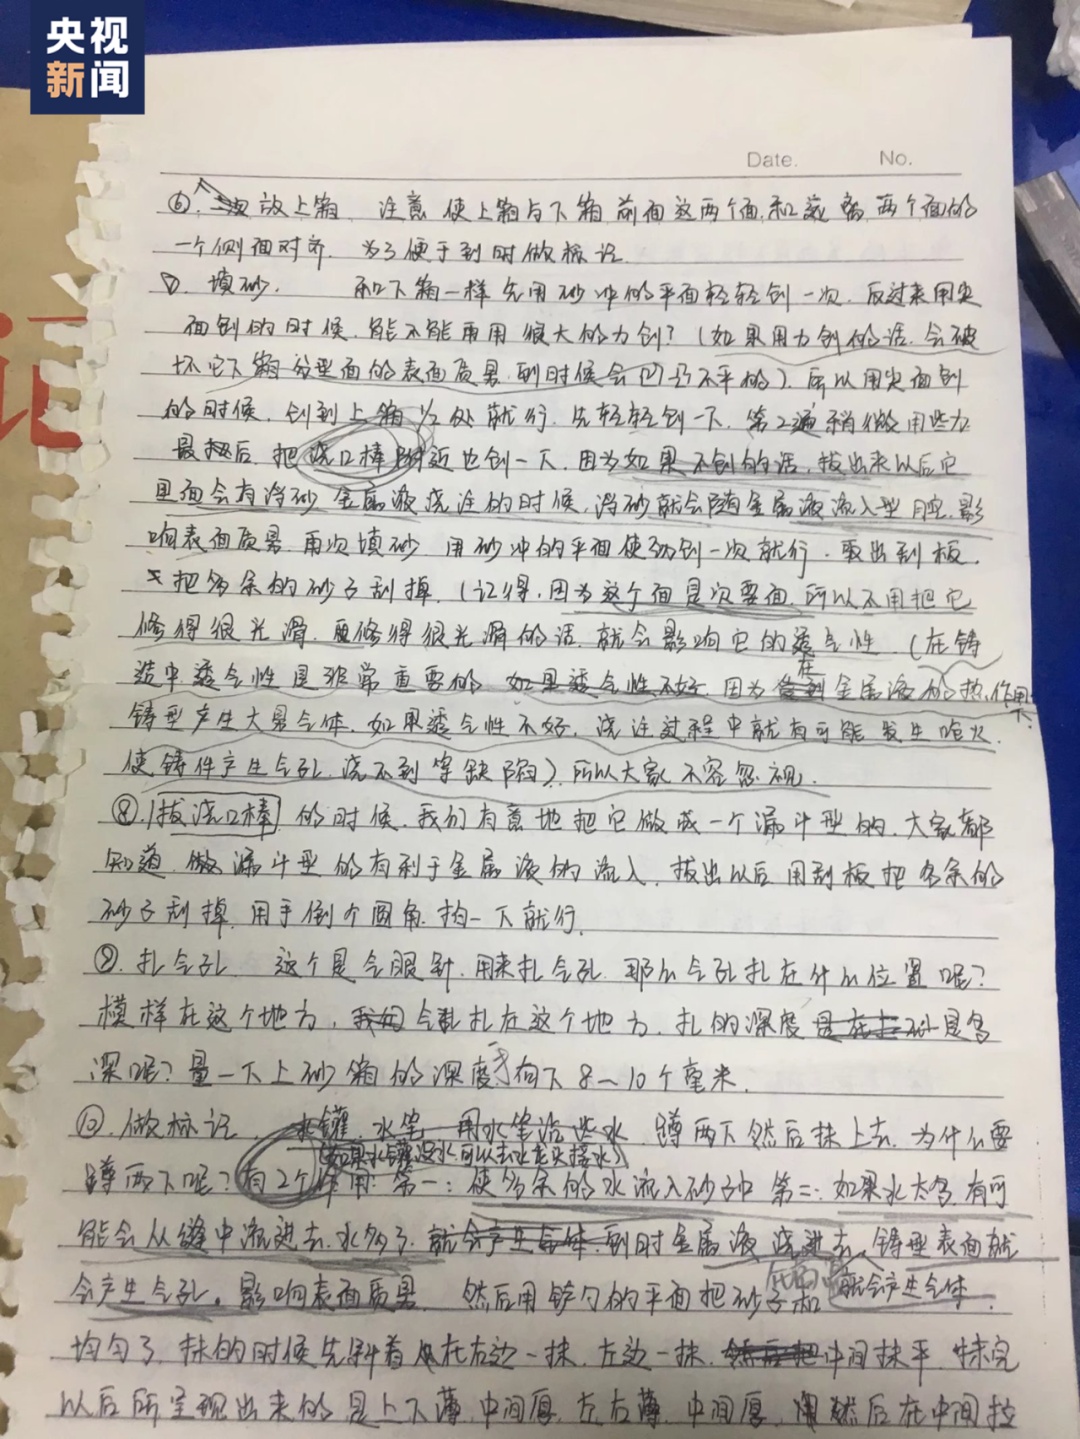 央视
新闻
Date. No.
⑥. 放上箱. 注意 使上箱与下箱前面这两个面,和 两个面的
一个侧面对齐. 为了便于到时做标记.
⑦. 填砂. 和下箱一样先用砂冲的平面轻轻刨一次. 反过来用尖
面刨的时候. 能不能再用很大的力刨?(如果用力刨的话. 会破
坏它下箱分型面的表面质量. 到时候会凹凸不平的). 所以用尖面刨
的时候. 刨到上箱1/2处就行. 先轻轻刨一下. 第2遍稍微用些力
最后. 把浇口棒附近也刨一下. 因为如果不刨的话, 拔出来以后它
里面会有浮砂 金属液浇注的时候, 浮砂就会随金属液流入型腔. 影
响表面质量. 再次填砂 用砂冲的平面使劲刨一次就行. 取出刮板.
把多余的砂子刮掉. (记得, 因为这个面是次要面. 所以不用把它
修得很光滑. 要修得很光滑的话. 就会影响它的透气性. (在铸
造中透气性是非常重要的 如果透气性不好. 因为在金属液的热作用下.
铸型产生大量气体. 如果透气性不好. 浇注过程中就有可能发生呛火.
使铸件产生气孔. 浇不到等缺陷). 所以大家不容忽视.
⑧. 拔浇口棒 的时候. 我们有意地把它做成一个漏斗型的. 大家都
知道. 做漏斗型的有利于金属液的流入. 拔出以后用刮板把多余的
砂子刮掉. 用手倒个圆角. 拍一下就行.
⑨. 扎气孔. 这个是气眼针. 用来扎气孔. 那么气孔扎在什么位置呢?
模样在这个地方, 气孔扎在这个地方. 扎的深度是多
深呢? 量一下上砂箱的深度 向下8—10个毫米.
⑩. 做标记. 水罐. 水笔 用水笔沾些水 蹲两下然后抹上去. 为什么要
(如果水罐没水可以去水龙头接水)
蹲两下呢? 有2个作用: 第一: 使多余的水流入砂子中 第二: 如果水太多. 有可
能会从缝中流进去. 水多了. 就会产生气体. 到时金属液浇进去. 铸型表面就
会产生气孔。影响表面质量. 然后用铲勺的平面把砂子和 就会产生气体.
均匀了. 抹的时候先斜着从在右边一抹. 左边一抹. 中间抹平. 抹完
以后所呈现出来的是上下薄. 中间厚. 左右薄. 中间厚. 然后在中间拉